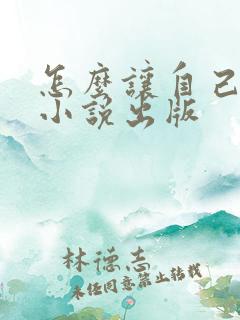 怎麼讓自己
小說出版
林德志
未經同意禁止轉載